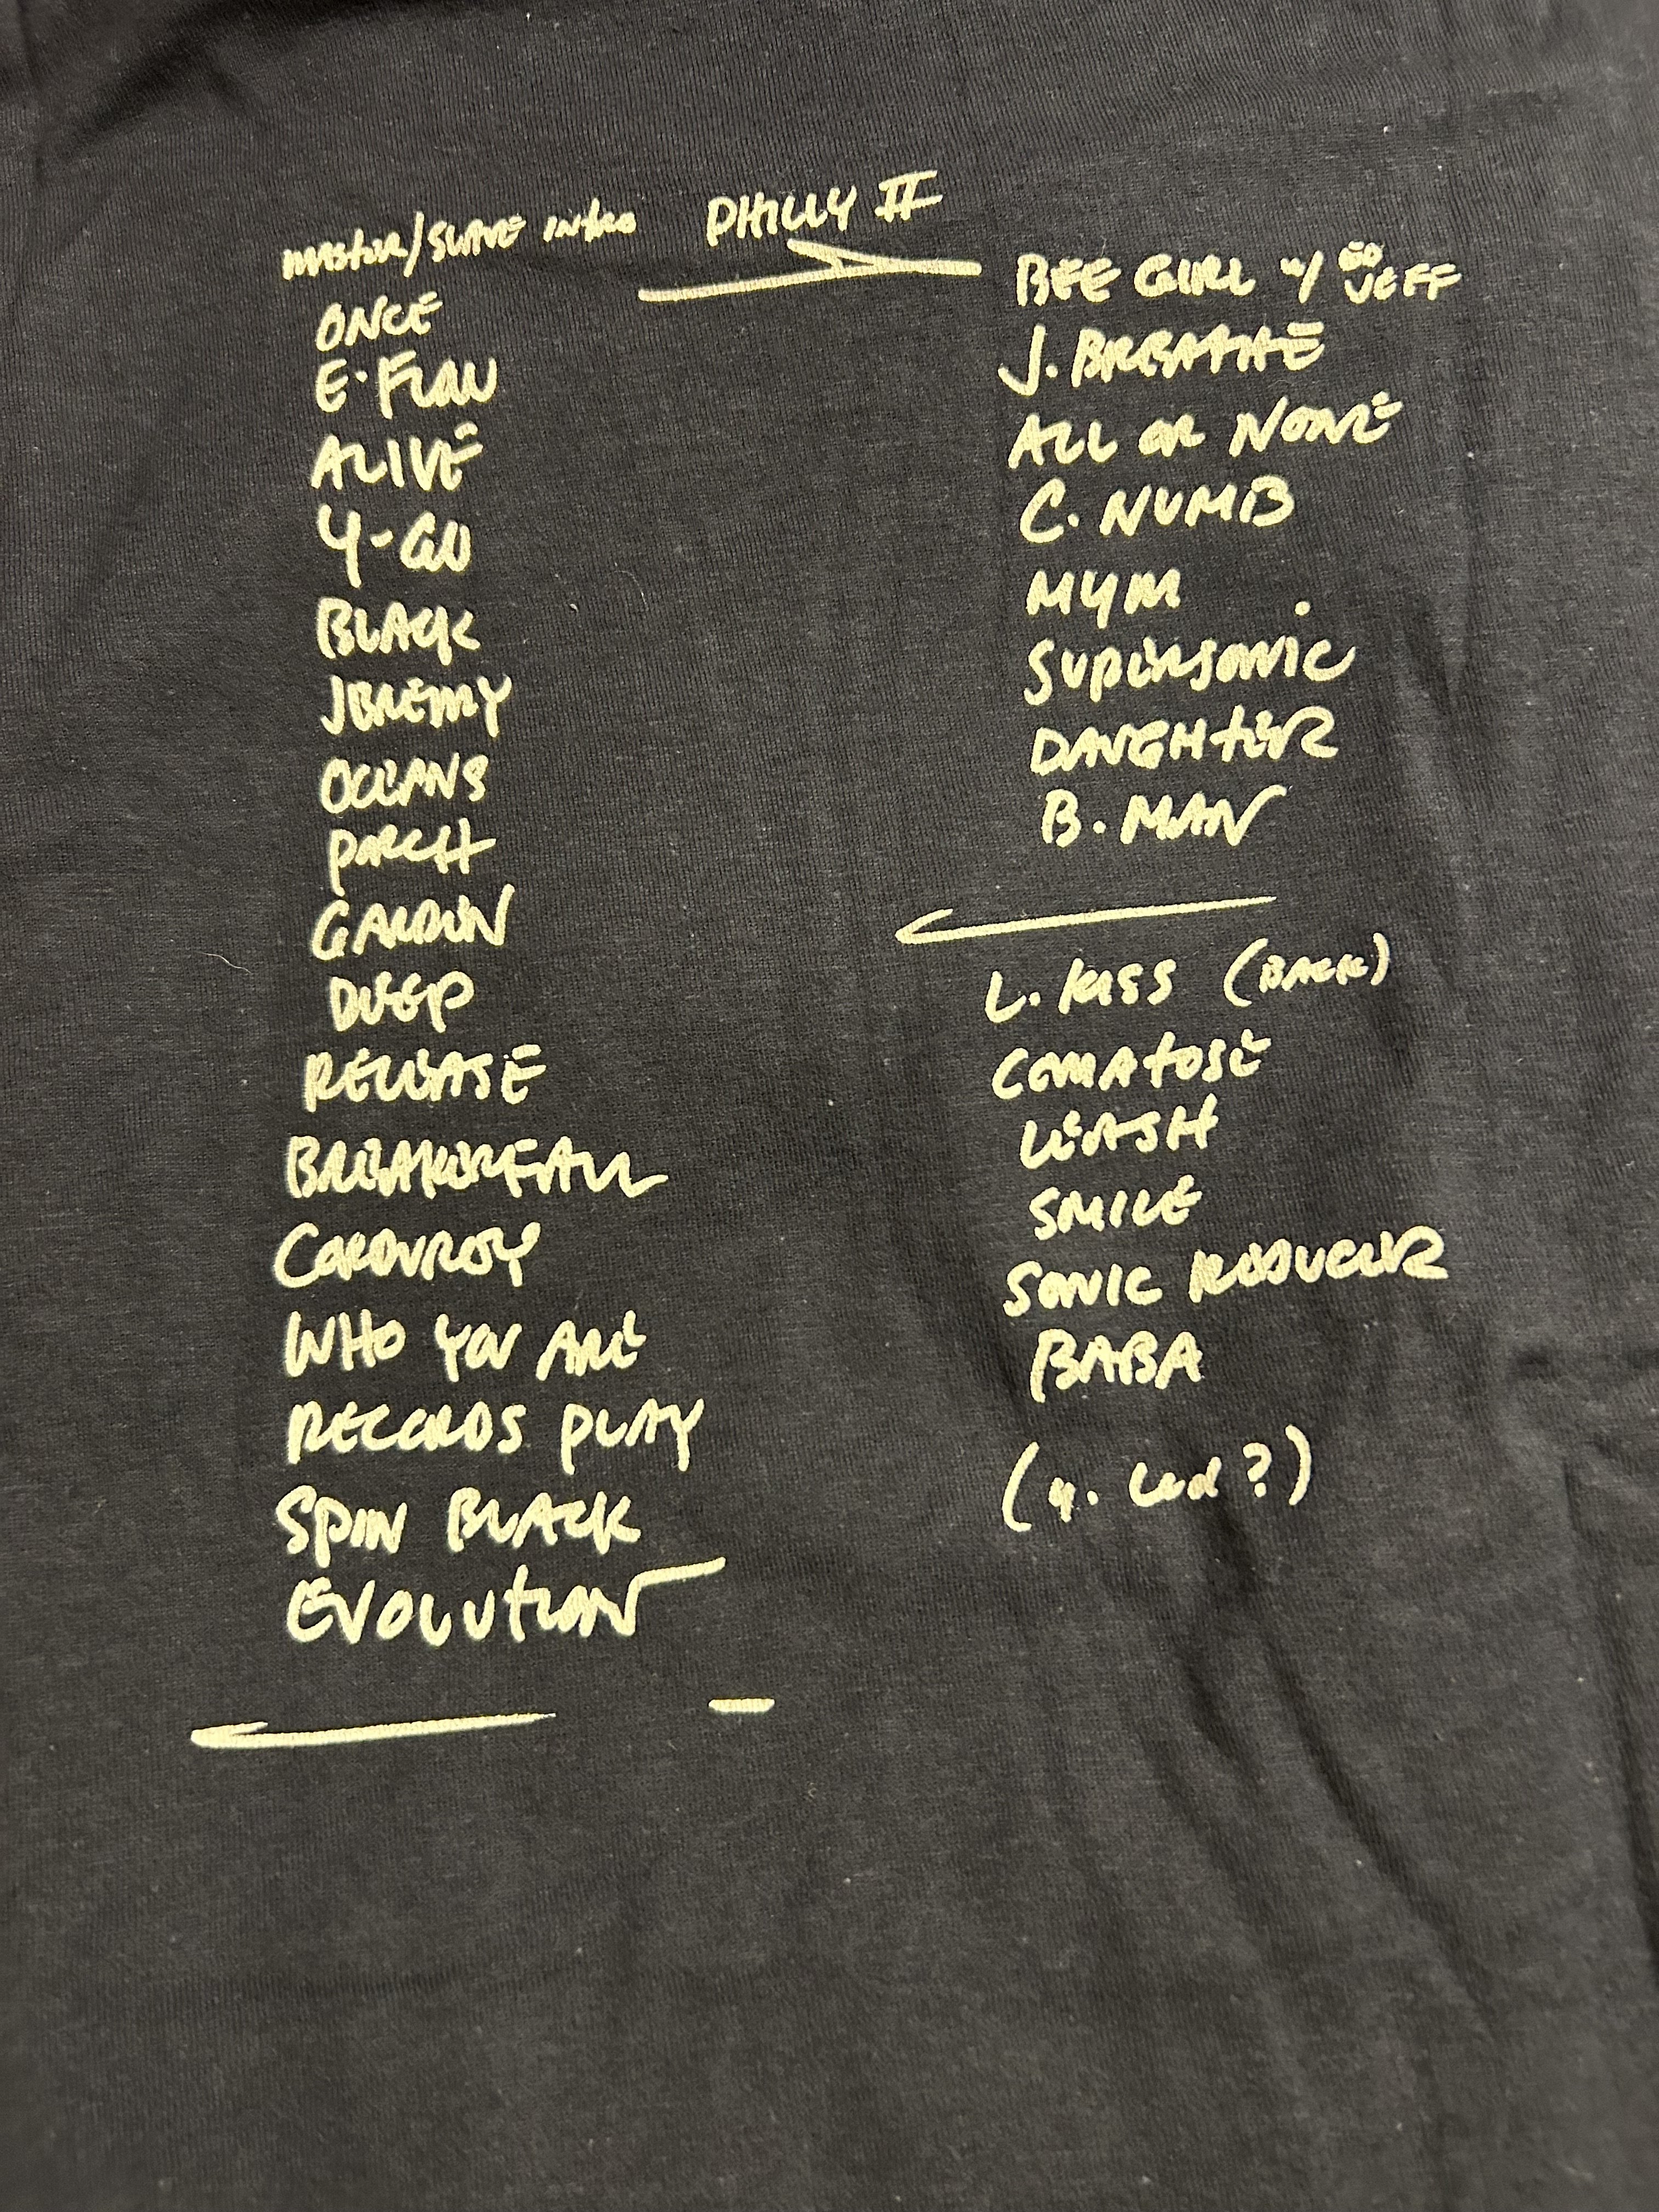 PHILLY II
MASTER/SLAVE INTRO
ONCE
E·FLOW
ALIVE
Y-GO
BLACK
JEREMY
OCEANS
PORCH
GARDEN
DEEP
RELEASE
BREAKERFALL
CORDUROY
WHO YOU ARE
RECORDS PLAY
SPIN BLACK
EVOLUTION
BEE GIRL w/ ED JEFF
J. BREATHE
ALL OR NONE
C. NUMB
MYM
SUPERSONIC
DAUGHTER
B. MAN
L. KISS (BACK)
COMATOSE
LEASH
SMILE
SONIC REDUCER
BABA
(y. Led?)